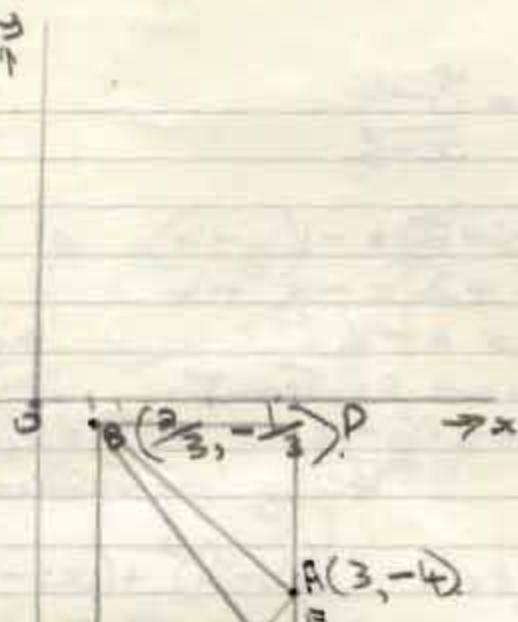 y
↑
O
B (2/3, -1/3) D
→ x
A (3, -4)
E